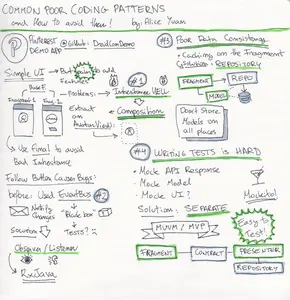 COMMON POOR CODING PATTERNS
and How to avoid them! by Alice Yuan
PINTEREST DEMO APP
Simple UI → But again to add features
Problems: Inheritance HELL
#1
Fragment 1
Extract an
Composition
Use Final to avoid Bad Inheritance
Follow Button Causes Bugs:
before: Used EventBus
#2
Notify always
"Black box"
Solution
Tests?
Observer / Listener
RxJava
#3 Poor Data Consistency
• Caching on the Fragment
Solution: REPOSITORY
FRAGMENT
REPO
MODEL
Don't Store Models on all places
#4 WRITING TESTS is HARD
• Mock API Response
• Mock Model
• Mock UI?
Mockito!
Solution: SEPARATE
Easy to Test!
MVVM / MVP
FRAGMENT
CONTRACT
PRESENTER
REPOSITORY